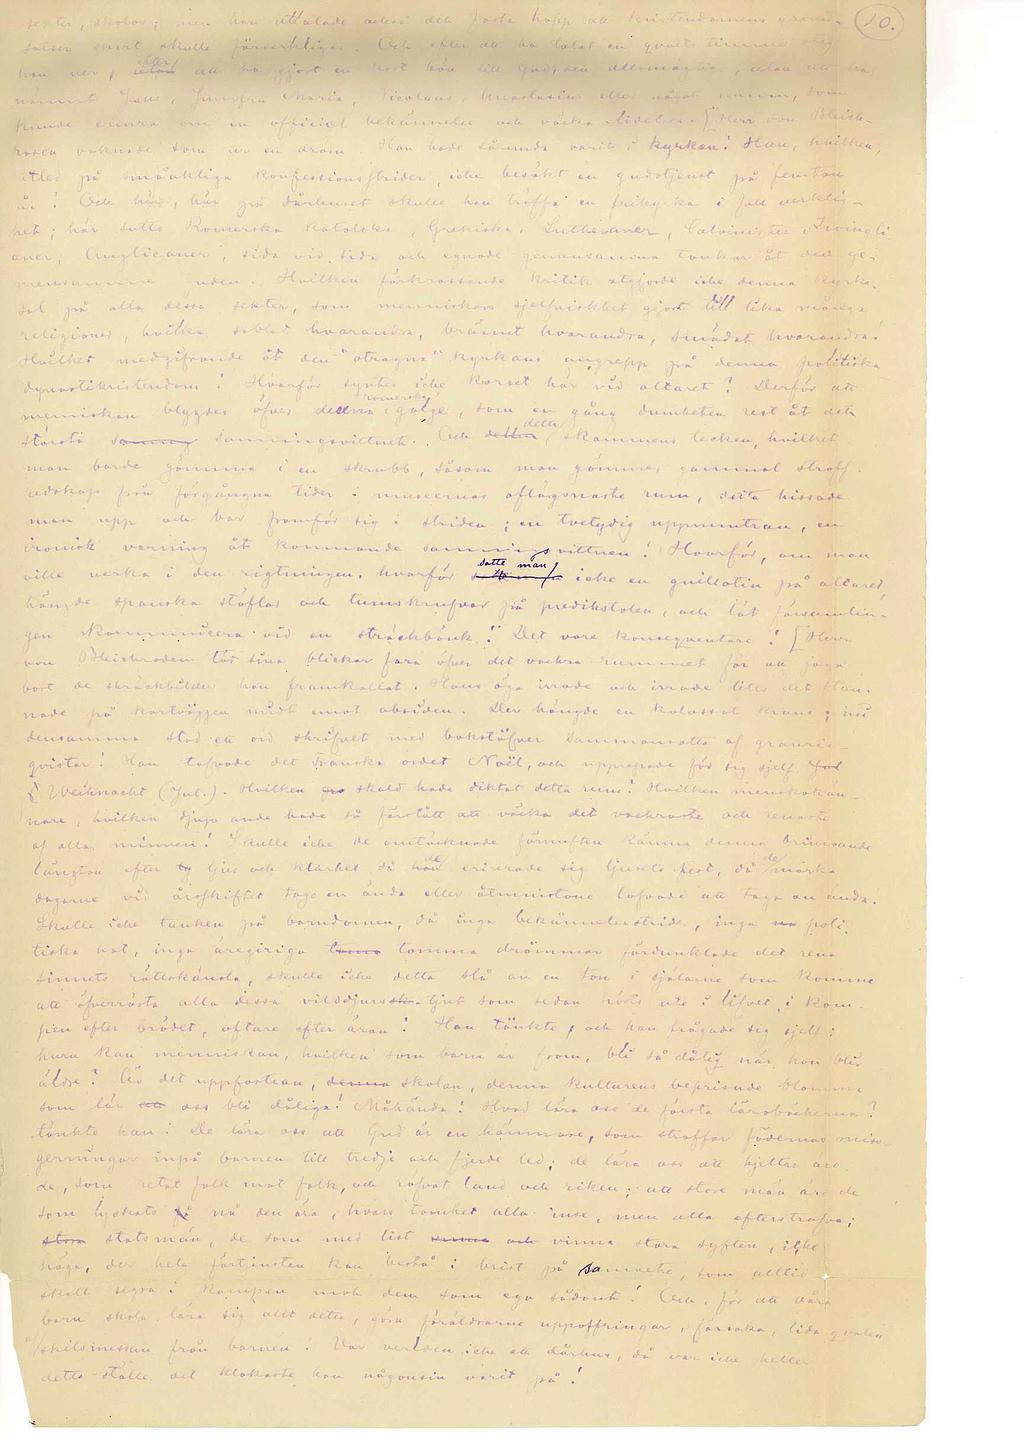 10.
sekter, skolor; men han uttalade också det fasta hopp att kristendomens grund-
satser snart skulle förverkligas. Och efter att ha talat en qvarts timme steg
han ner, efter att ha gjort en kort bön till Gud, den allsmäktige, utan att ha
nämnt Jesus, Jungfru Maria, Nicolaus, Anastasius eller något namn, som
kunde erinra om en officiel bekännelse och väcka lidelser. [Herr von Bleich-
roden vaknade som ur en dröm. Han hade sålunda varit i kyrkan! Han, hvilken,
utled på småaktiga konfessionsstrider, icke besökt en gudstjenst på femton
år! Och här, här på dårhuset skulle han träffa en frikyrka i full verklig-
het; här sutto Romerska Katolska, Grekiska, Lutheraner, Calvinister, Zwingli
aner, Anglicaner, sida vid sida och egnade gemensamma tankar åt den ge-
mensamme guden. Hvilken förkrossande kritik utgjorde icke denna kyrka-
sal på alla dessa sekter, som menniskors sjelfviskhet gjort till lika många
religioner, hvilka sablat hvarandra, brännt hvarandra, smädat hvarandra!
Hvilket medgifvande åt den "otrogna" kyrkans angrepp på denna politiska
dynastikristendom! Hvarför syntes icke korset här vid altaret! Derför att
menniskan blygdes öfver denna romerska galge, som en gång dumheten rest åt det
största sanningsvittnet. Och detta skammens tecken, hvilket
man borde gömma i en skrubb, såsom man gömmer gammal straff-
redskap från förgångna tider i museernas aflägsnaste rum, detta hissade
man upp och bar framför sig i striden; en tvetydig uppmuntran, en
ironisk varning åt kommande sanningsvittnen! Hvarför, om man
ville verka i den rigtningen, hvarför satte man icke en guillotin på altaret,
hängde spanska stöflar och tumskrufvar på predikstolen, och lät församlin-
gen kommunicera vid en sträckbänk! Det vore konseqventare! [Herr
von Bleichroden lät sina blickar fara öfver det vackra rummet för att jaga
bort de skräckbilder han framkallat. Hans öga irrade och irrade tills det stan-
nade på kortväggen midt emot absiden. Der hängde en kolossal krans; uti
densamma stod ett ord skrifvet med bokstäfver sammansatta af granris-
qvistar! Han läste det franska ordet Noël, och upprepade för sig sjelf
Weihnacht (Jul.). Hvilken skald hade diktat detta rum! Hvilken menskokän-
nare, hvilken djup ande hade så förstått att väcka det vackraste och renaste
af alla minnen! Skulle icke de omtöcknade förnuften känna denna brinnande
längtan efter ljus och klarhet då de erinrade sig ljusets fest, då de mörka
dagarne vid årsskiftet togo en ända eller åtminstone lofvade att taga en ända.
Skulle icke tanken på barndomen, då inga bekännelsestrider, inga poli
tiska hat, inga äregiriga tomma drömmar fördunklade det rena
sinnets rättskänsla, skulle icke detta slå an en ton i själarne som komme
att öfverrösta alla dessa vilddjurstjut som sedan hörts ute i lifvet, i kam
pen efter brödet, oftare efter äran! Han tänkte, och han frågade sig sjelf:
huru kan menniskan, hvilken som barn är from, bli så dålig när hon blir
äldre? Är det uppfostran, skolan, denna kulturens beprisade blomma
som lär oss bli dåliga! Måhända! Hvad lära oss de första läroböckerna?
tänkte han: De lära oss att Gud är en hämnare, som straffar fädernas miss-
gerningar inpå barnen till tredje och fjerde led; de lära oss att hjeltar äro
de, som retat folk mot folk, och röfvat land och riken; att store män äro de
som lyckats nå den ära, hvars tomhet alla inse, men alla eftersträfva;
statsmän, de som med list vinna stora syften, icke
höga, der hela förtjensten kan bestå i brist på samvete, som alltid
skall segra i kampen mot dem som ega sådant! Och, för att våra
barn skola lära sig allt detta, göra föräldrarne uppoffringar, försaka, lida qvalen
af skilsmessan från barnen. Var verlden icke ett dårhus, då var icke heller
detta ställe det klokaste han någonsin varit på!